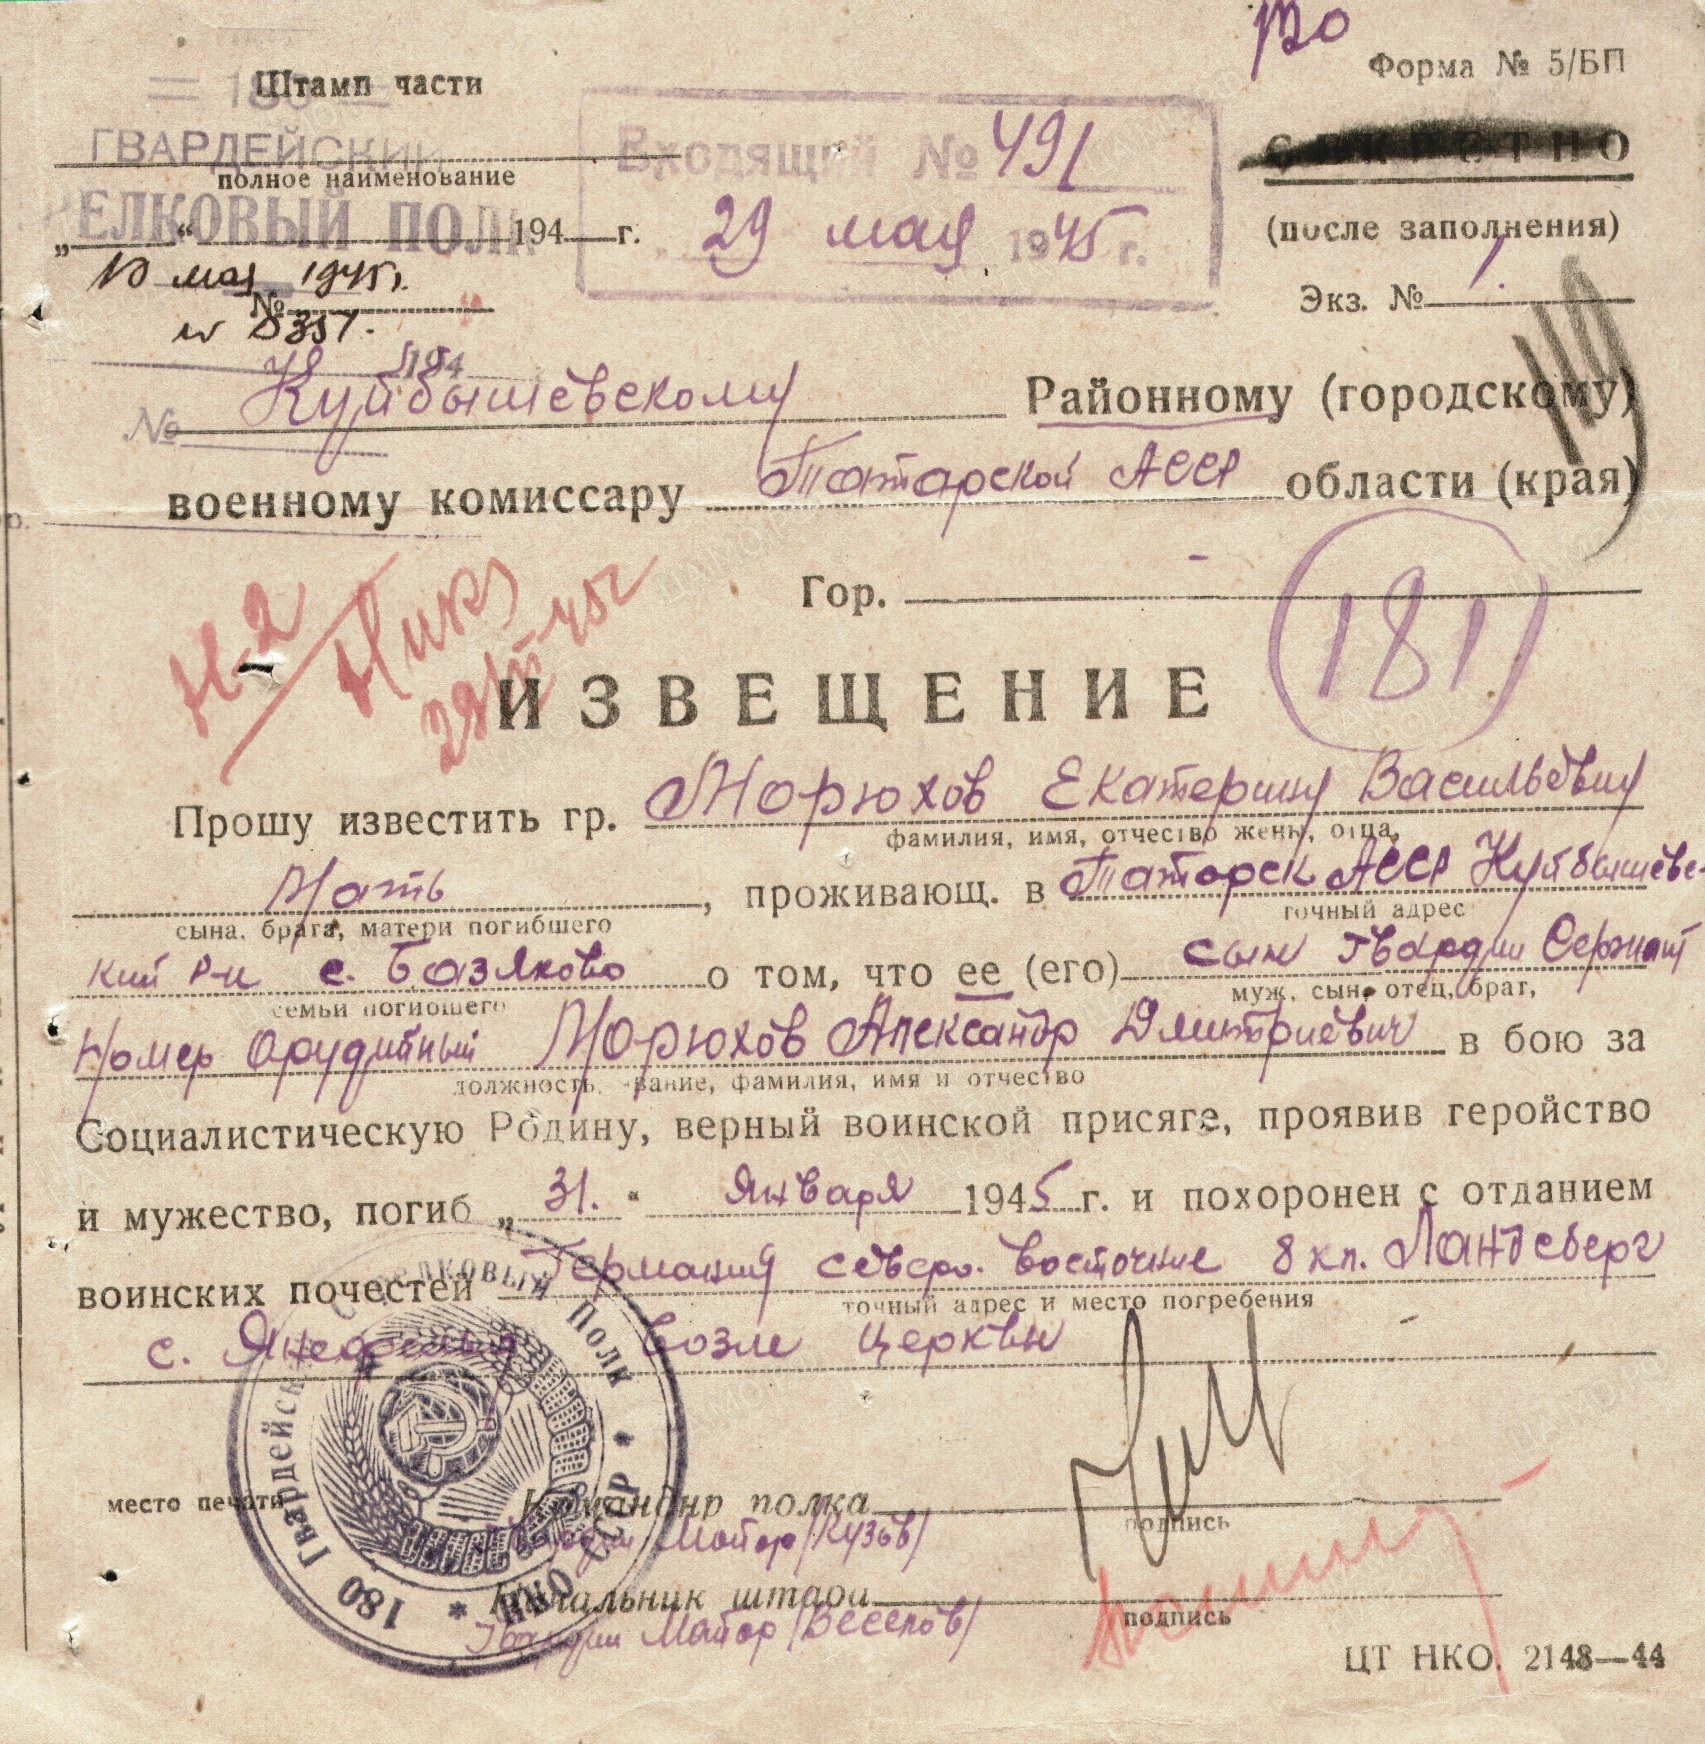 Форма № 5/БП
Штамп части
ГВАРДЕЙСКИЙ
полное наименование
ЕЛКОВЫЙ ПОЛК
Входящий № 491
29 мая 1945 г.
СЕКРЕТНО
(после заполнения)
Экз. № 1.
„ “ 194 г.
10 мая 1945г.
№
№ 0351.
194
№
Куйбышевскому Районному (городскому)
военному комиссару Татарской АССР области (края)
Гор. -
181
ИЗВЕЩЕНИЕ
Прошу известить гр. Морюхов Екатерину Васильевну
фамилия, имя, отчество жены, отца,
Мать, проживающ. в Татарск АССР Куйбышевс-
сына, брата, матери погибшего точный адрес
кий р-н с. Базяково о том, что ее (его) сын Гвардии Сержант
семьи погибшего муж, сын, отец, брат,
Номер Орудийный Морюхов Александр Дмитриевич в бою за
должность, звание, фамилия, имя и отчество
Социалистическую Родину, верный воинской присяге, проявив геройство
и мужество, погиб „31.“ Января 1945 г. и похоронен с отданием
воинских почестей Германия северо. восточнее 8 км. Ландсберг
точный адрес и место погребения
с. возле церкви
180 Гвардейский Стрелковый Полк * НКО СССР *
место печати
Командир полка
подпись
Гвардии Майор /Кузов/
Начальник штаба
подпись
Гвардии Майор /Веселов/
ЦТ НКО. 2148—44